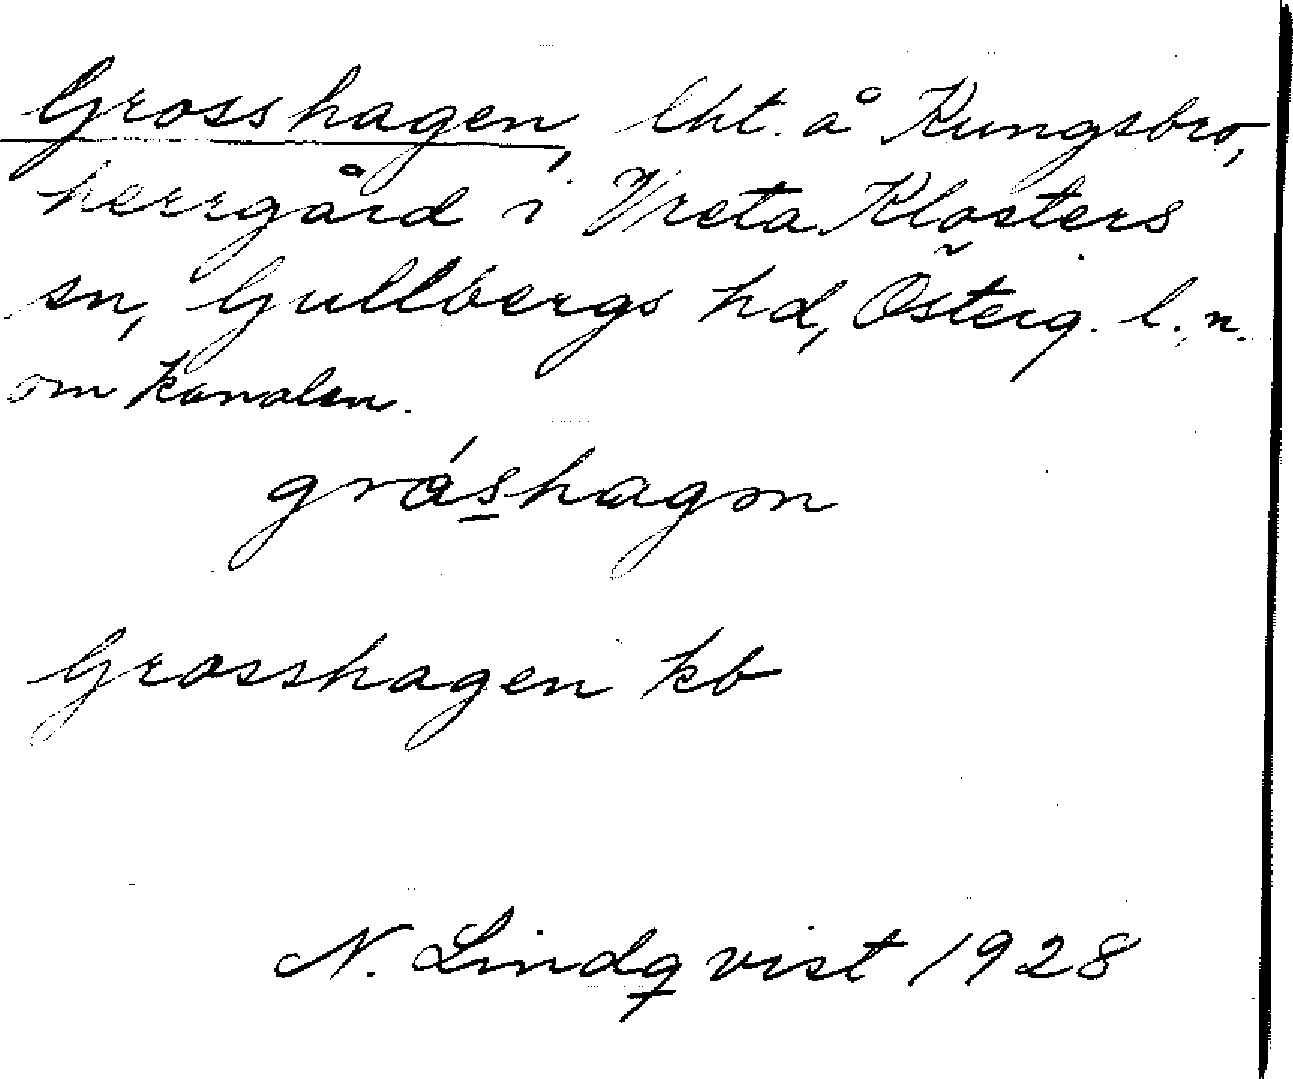 Grosshagen, lht. å Kungsbro,
herrgård i Vreta Klosters
sn, Gullbergs hd, Österg. l., n.
om kanalen.
gráshagən
Grosshagen kb
N. Lindqvist 1928